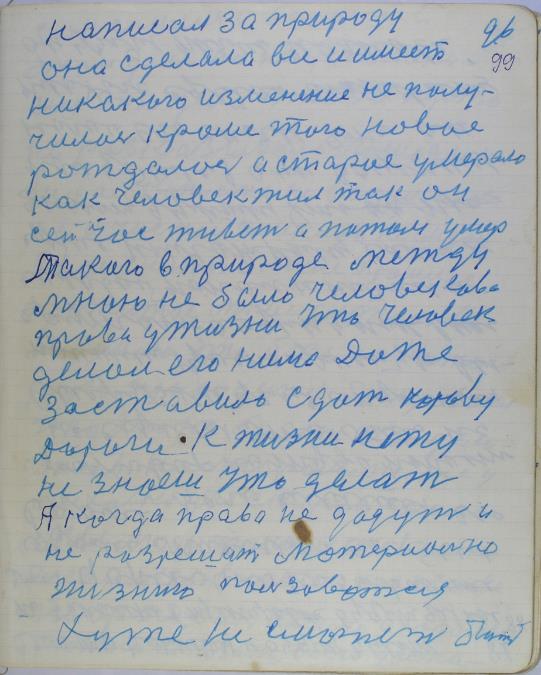 написал за природу 96
она сделала ви и имеет 99
никакого изменение не полу-
чилос кроме того новое
рождалос а старое умерало
как человек жил так он
сей час живет а потом умер
Такого в природе между
мною не было человекова
права у жизни что человек
делал его нима Даже
заставило сдат корову
Дароги к жизни нету
не знаеш что делат
А когда права не дадут и
не разрешат Материално
жизнию ползоватся
Хуже не сможет быт